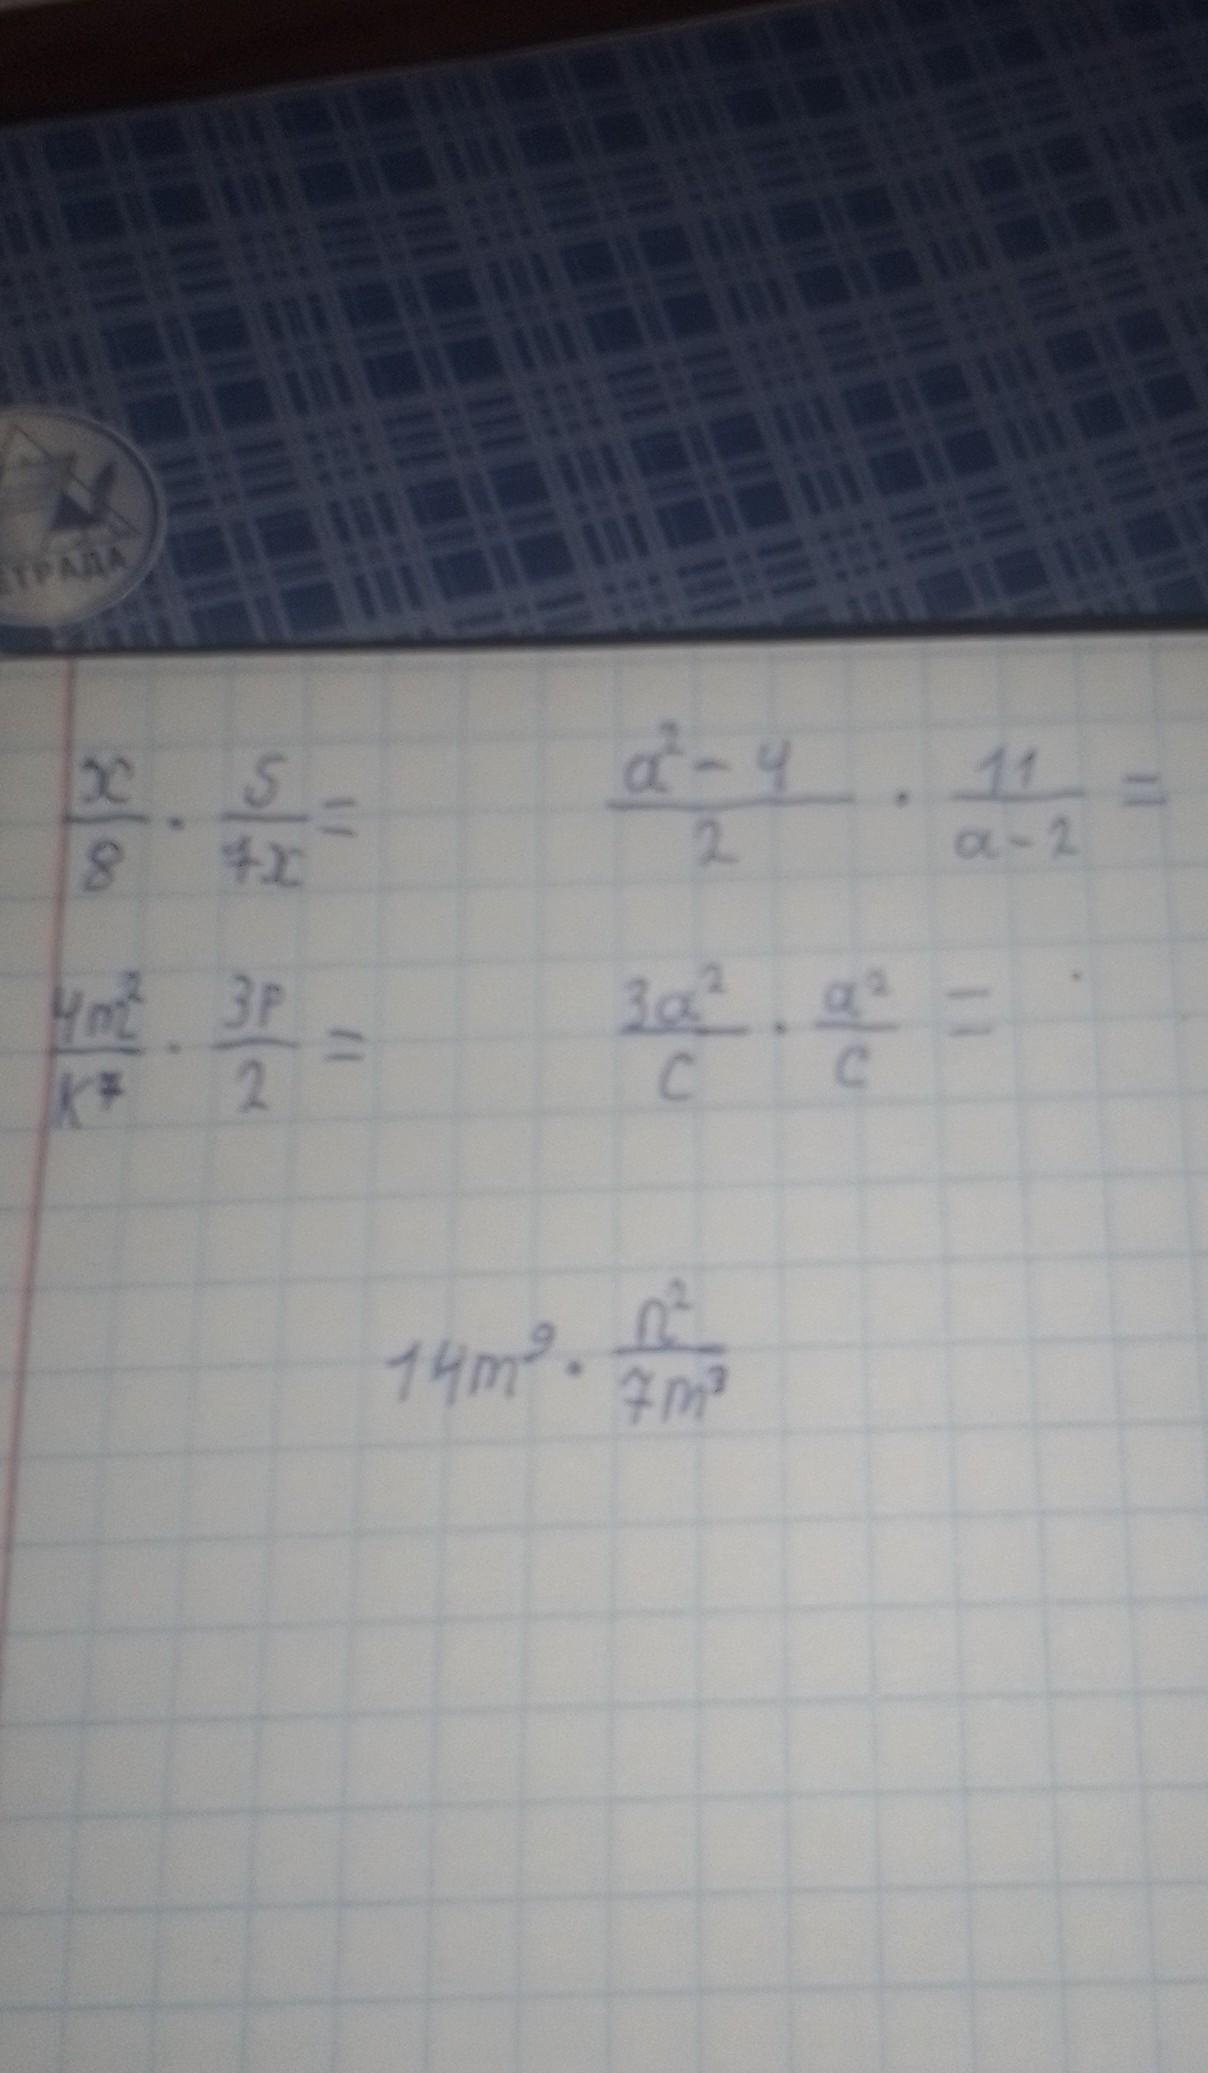 ЕТРАДА
x/8 · 5/7x =
a² - 4/2 · 11/a - 2 =
4m²/k⁷ · 3p/2 =
3a²/c · a²/c =
14m⁹ · n²/7m³